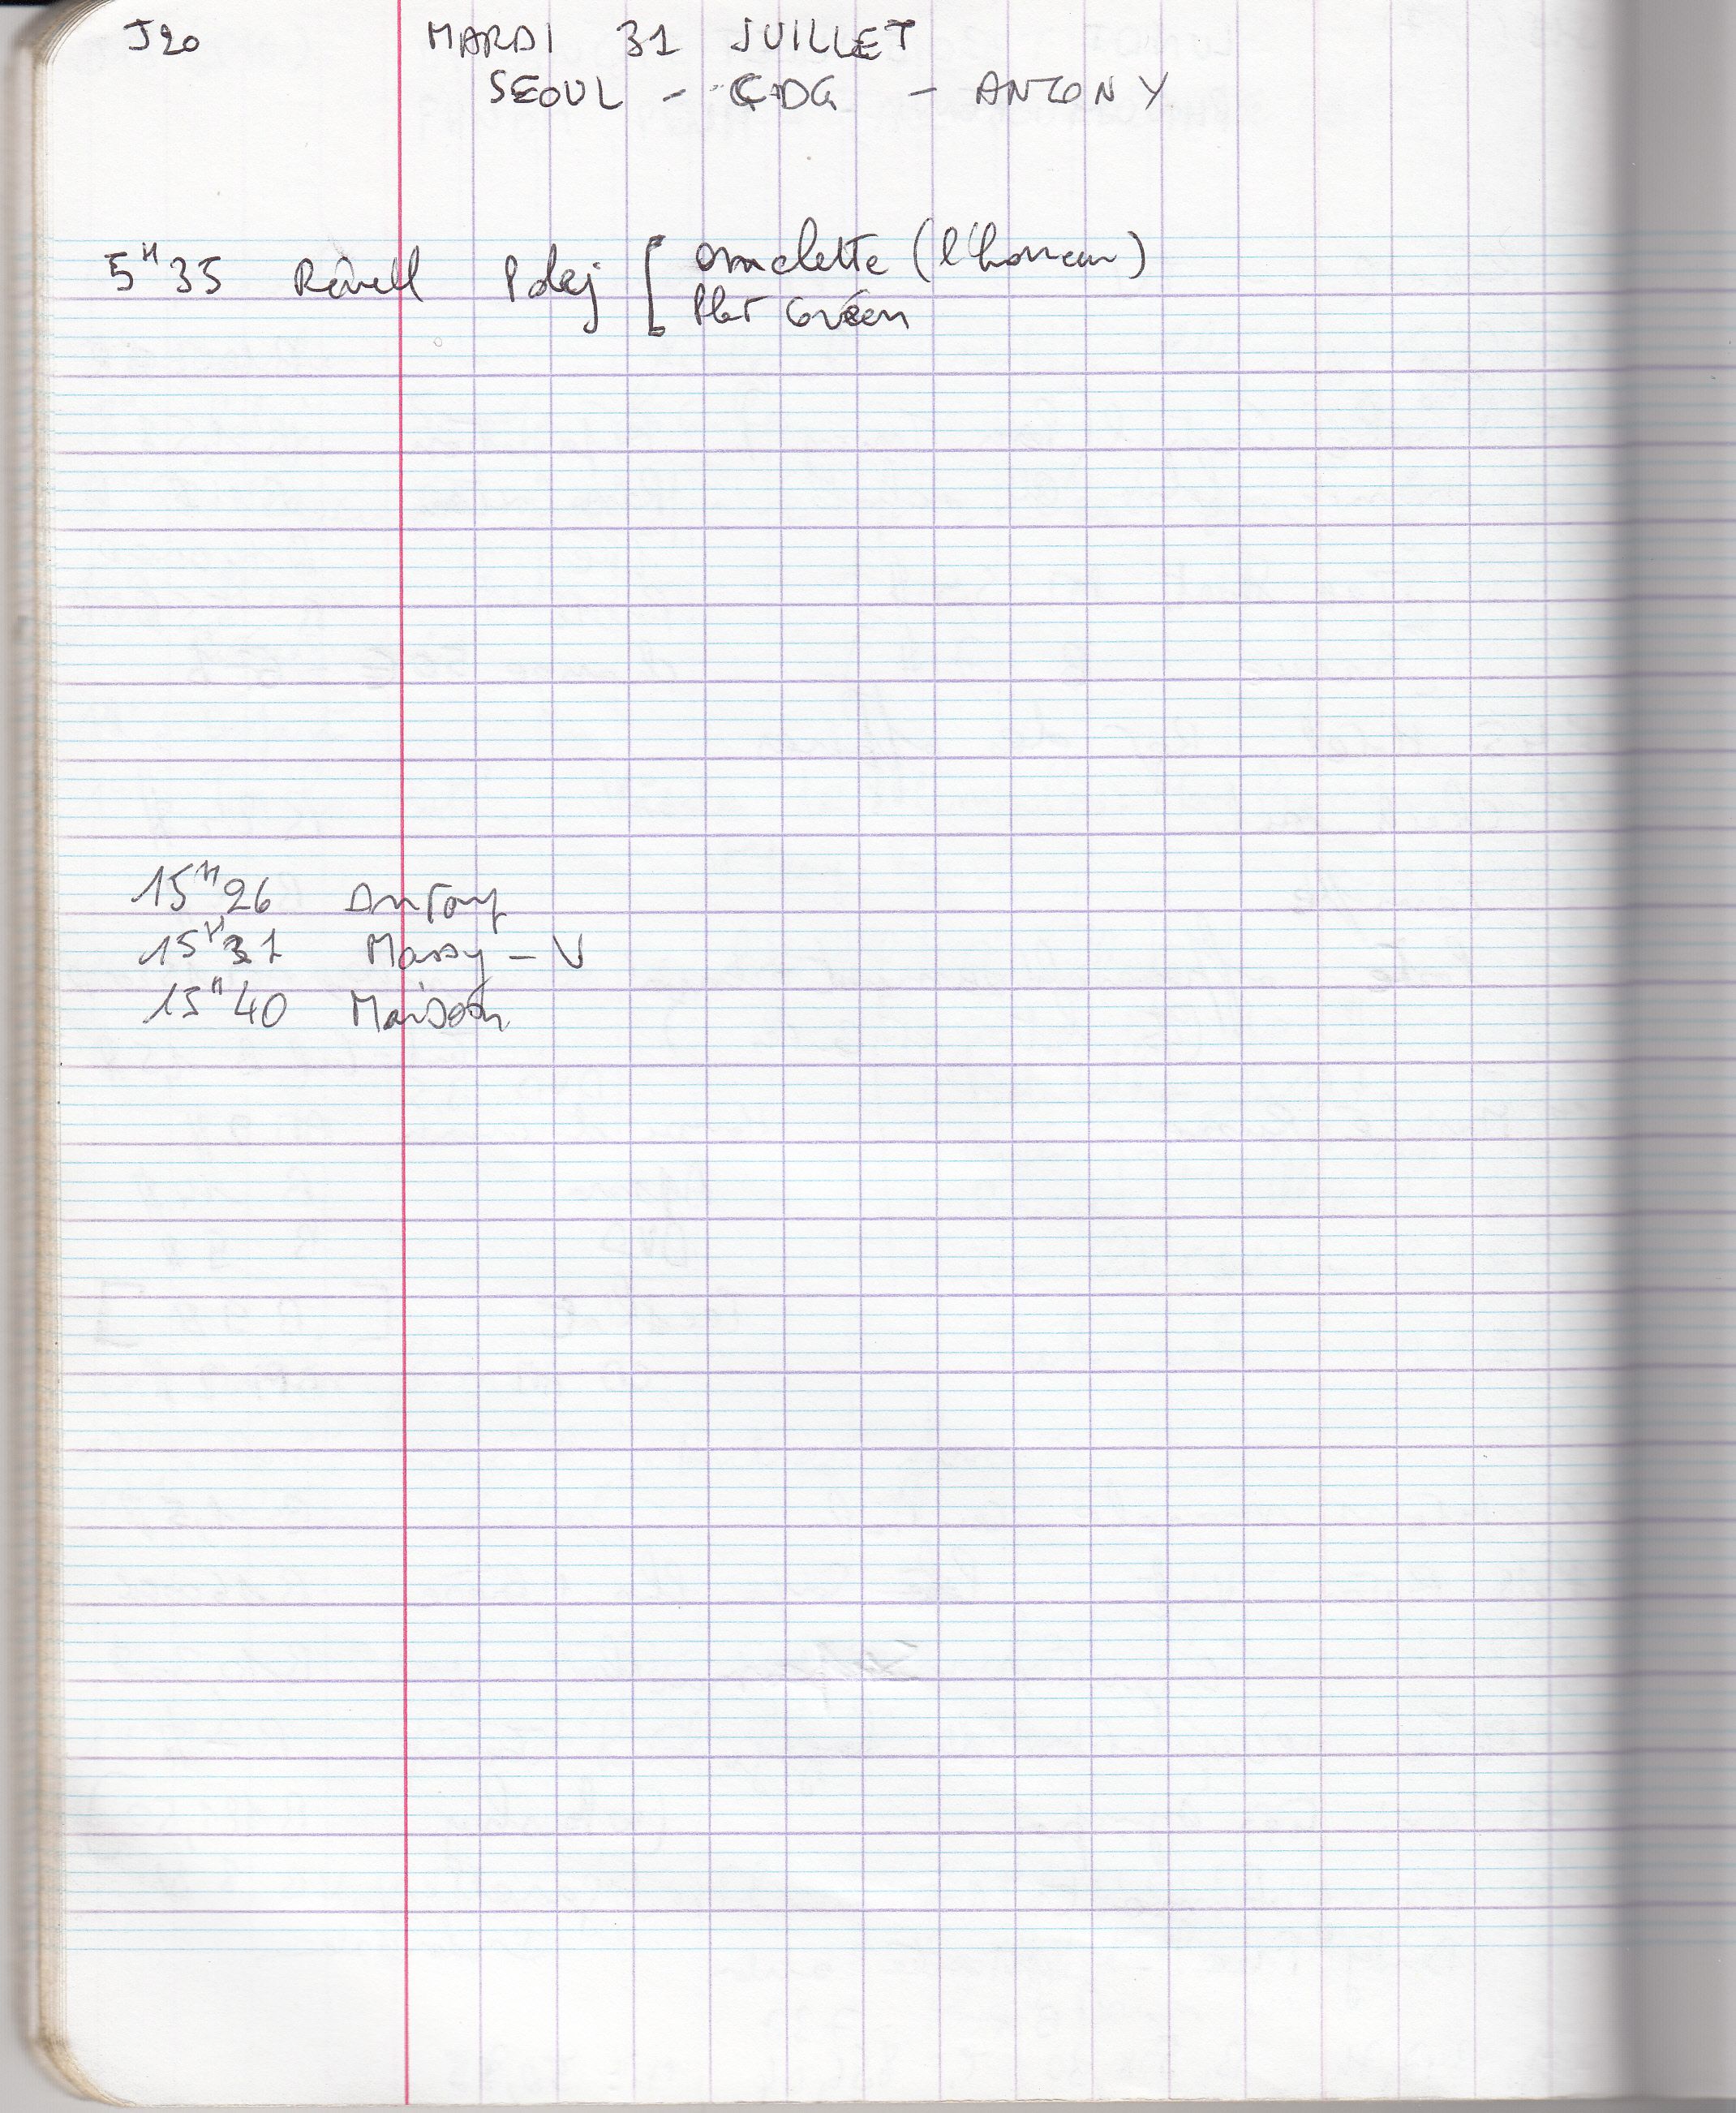 J20 MARDI 31 JUILLET
SEOUL - CDG - ANTONY
5H35 Réveil Pdej [ omelette (l'horreur)
Plat Coréen
15H26 Antony
15H31 Massy - V
15H40 Maison